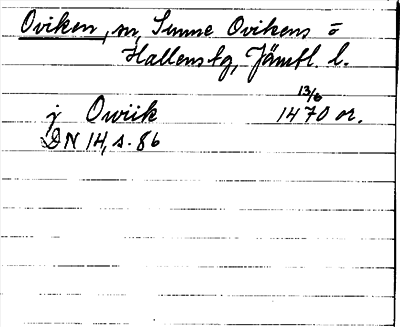 Oviken, sn, Sunne Ovikens o
Hallens tg, Jämtl. l.
13/6
j Owiik 1470 or.
DN 14, s. 86